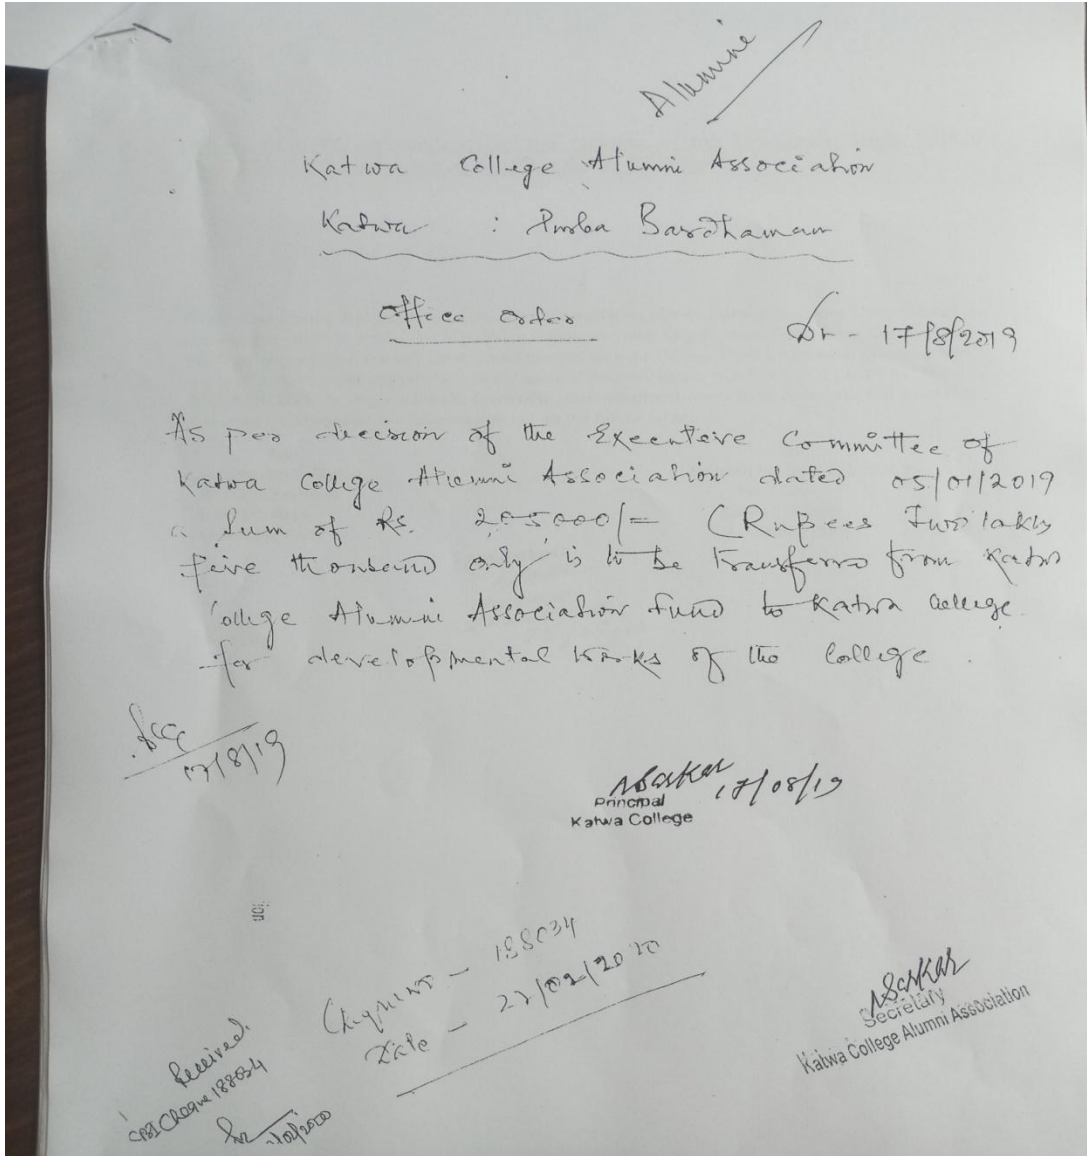 Alumine
Katwa College Alumni Association
Katwa : Purba Bardhaman
Office order
Dt - 17/8/2019
As per decision of the Executive Committee of
Katwa College Alumni Association dated 05/01/2019
a Sum of Rs. 205000/= (Rupees Two lakhs
five thousand only is to be transferred from Katwa
College Alumni Association fund to Katwa College
for developmental works of the College.
17/8/19
NSarkar 17/08/19
Principal
Katwa College
Chq No - 188034
Date - 27/02/2020
Received
CBI Cheque 188034
NSarkar
Secretary
Katwa College Alumni Association